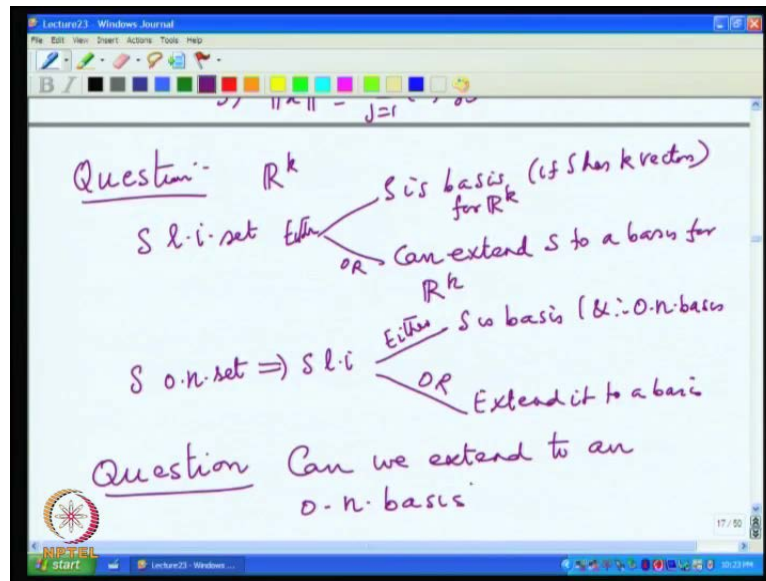 Lecture23 - Windows Journal
File Edit View Insert Actions Tools Help
B I
j=1
Question:- ℝᵏ
S l.i. set Either S is basis (if S has k vectors)
for ℝᵏ
OR Can extend S to a basis for
ℝᵏ
S o.n. set ⇒ S l.i Either S is basis (& ∴ O.n. basis
OR Extend it to a basis
Question Can we extend to an
o.n. basis
17 / 50
NPTEL
start Lecture23 - Windows ... 10:23 PM